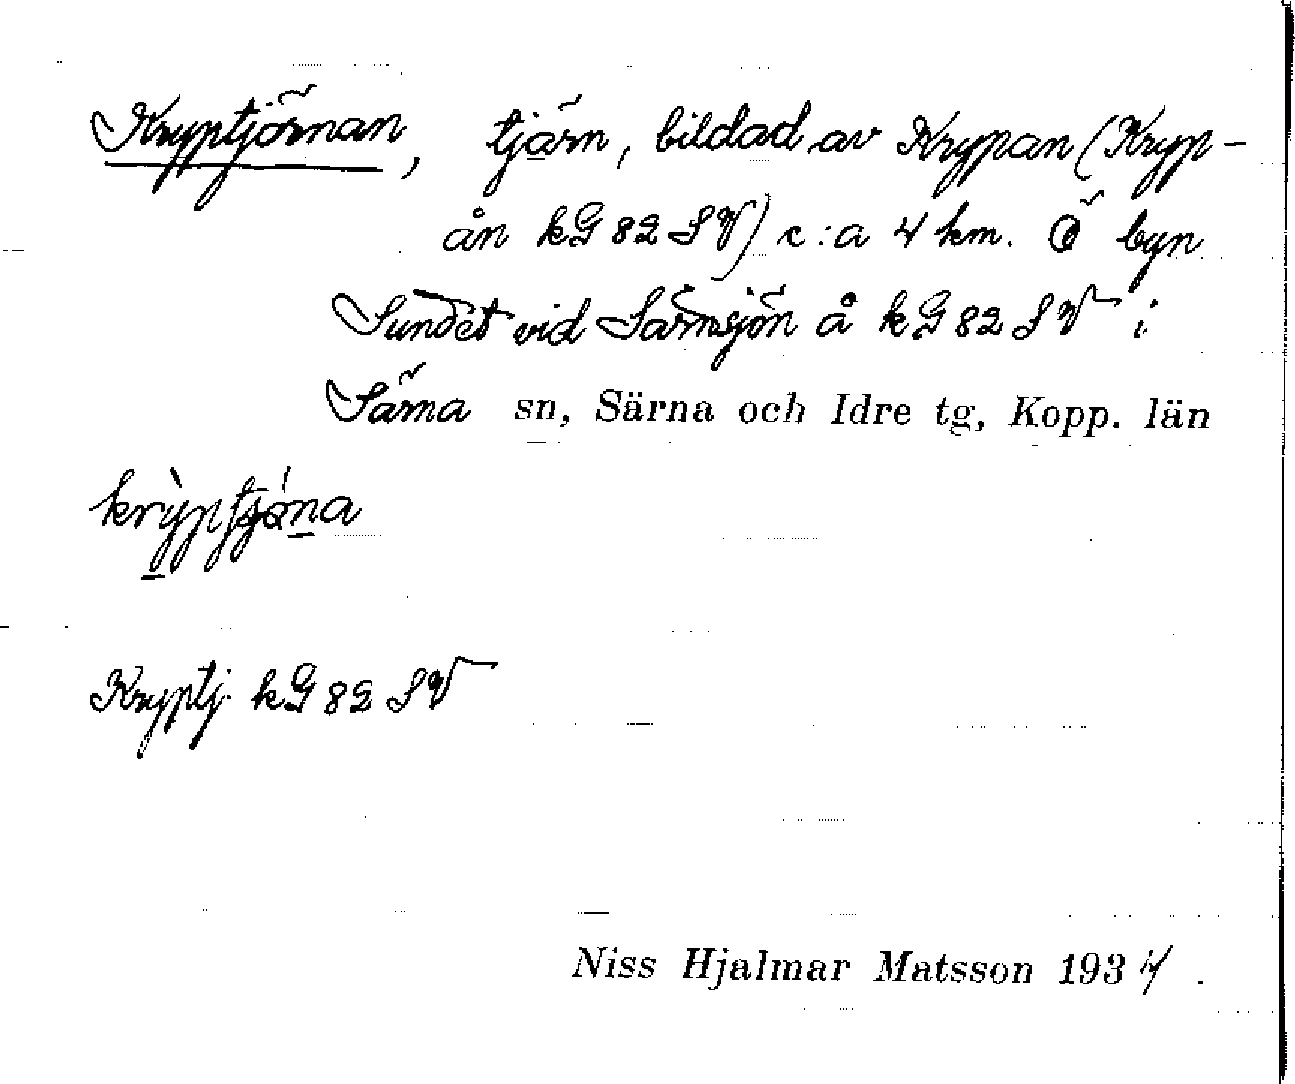 Kryptjörnan, tjärn, bildad av Krypan (Kryp-
ån kG 82 SV) c:a 4 km. Ö byn
Sundet vid Särnsjön å kG 82 SV i
Särna sn, Särna och Idre tg, Kopp. län
Kryptj. kG 82 SV
Niss Hjalmar Matsson 1934.